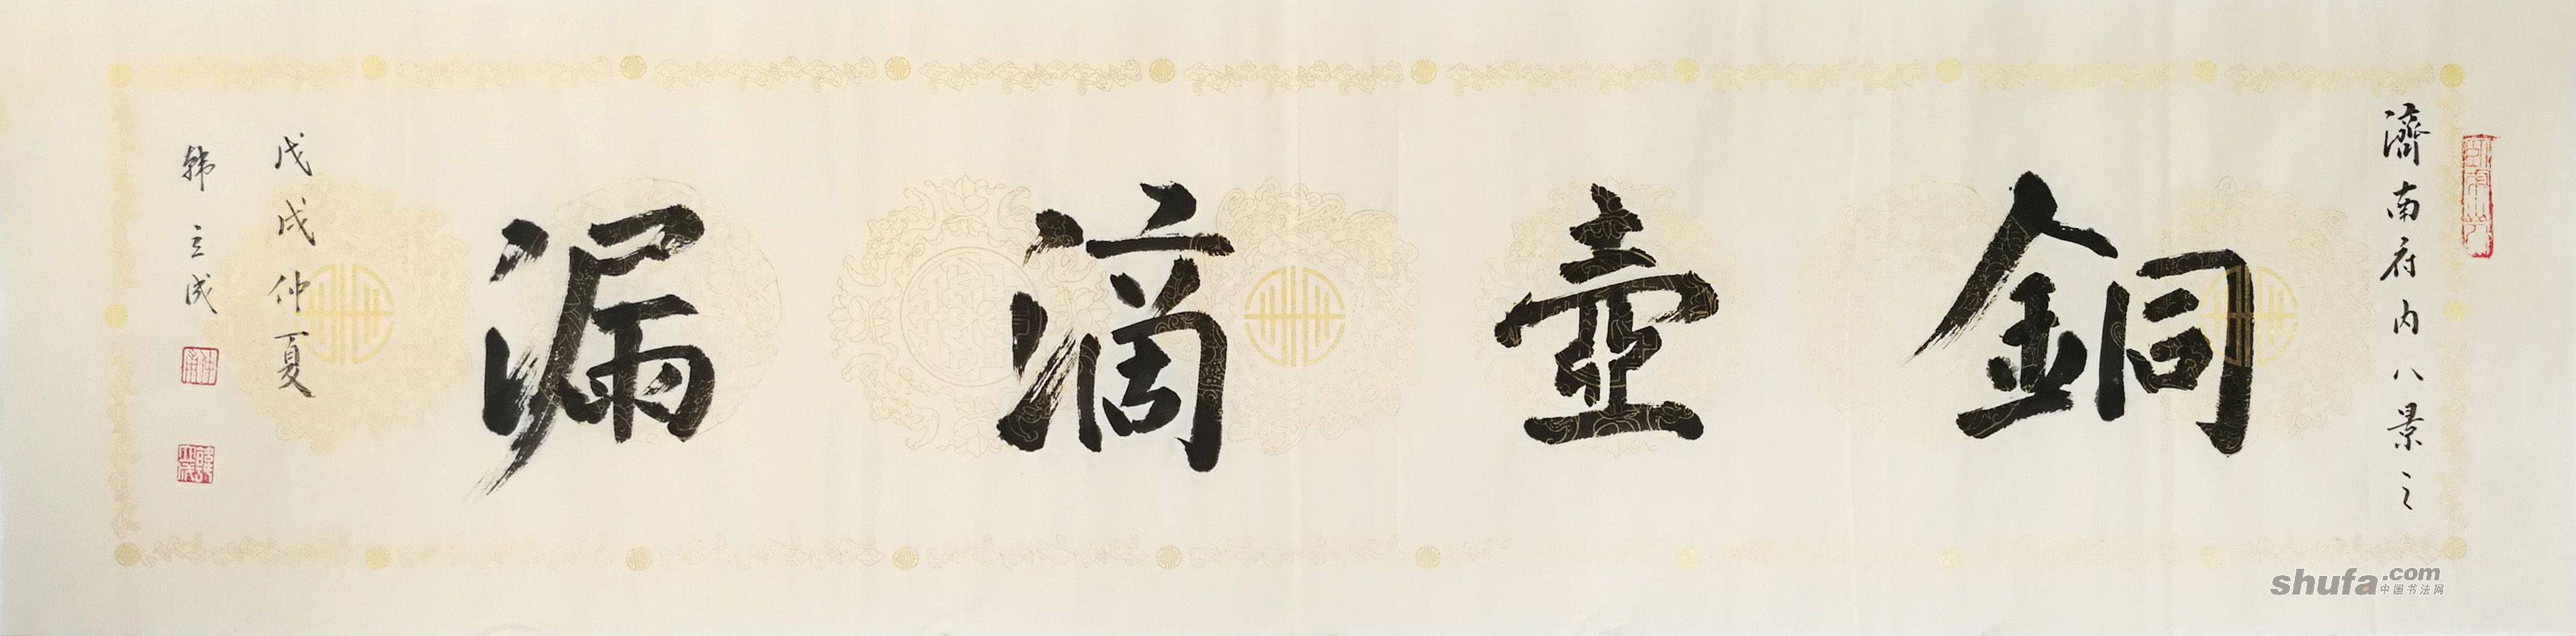 濟南府内八景之
銅壺滴漏
戊戌仲夏
韩立成
shufa.com
中国书法网